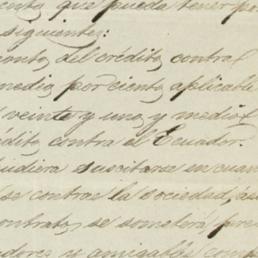 que pueda tener por
siguientes:
del crédito contra
medio por ciento aplicable
veinte y uno y medio
contra el Ecuador.
pudiera suscitarse en cuan
se contrae la sociedad, as
contrato, se someterá prec
y amigables comp